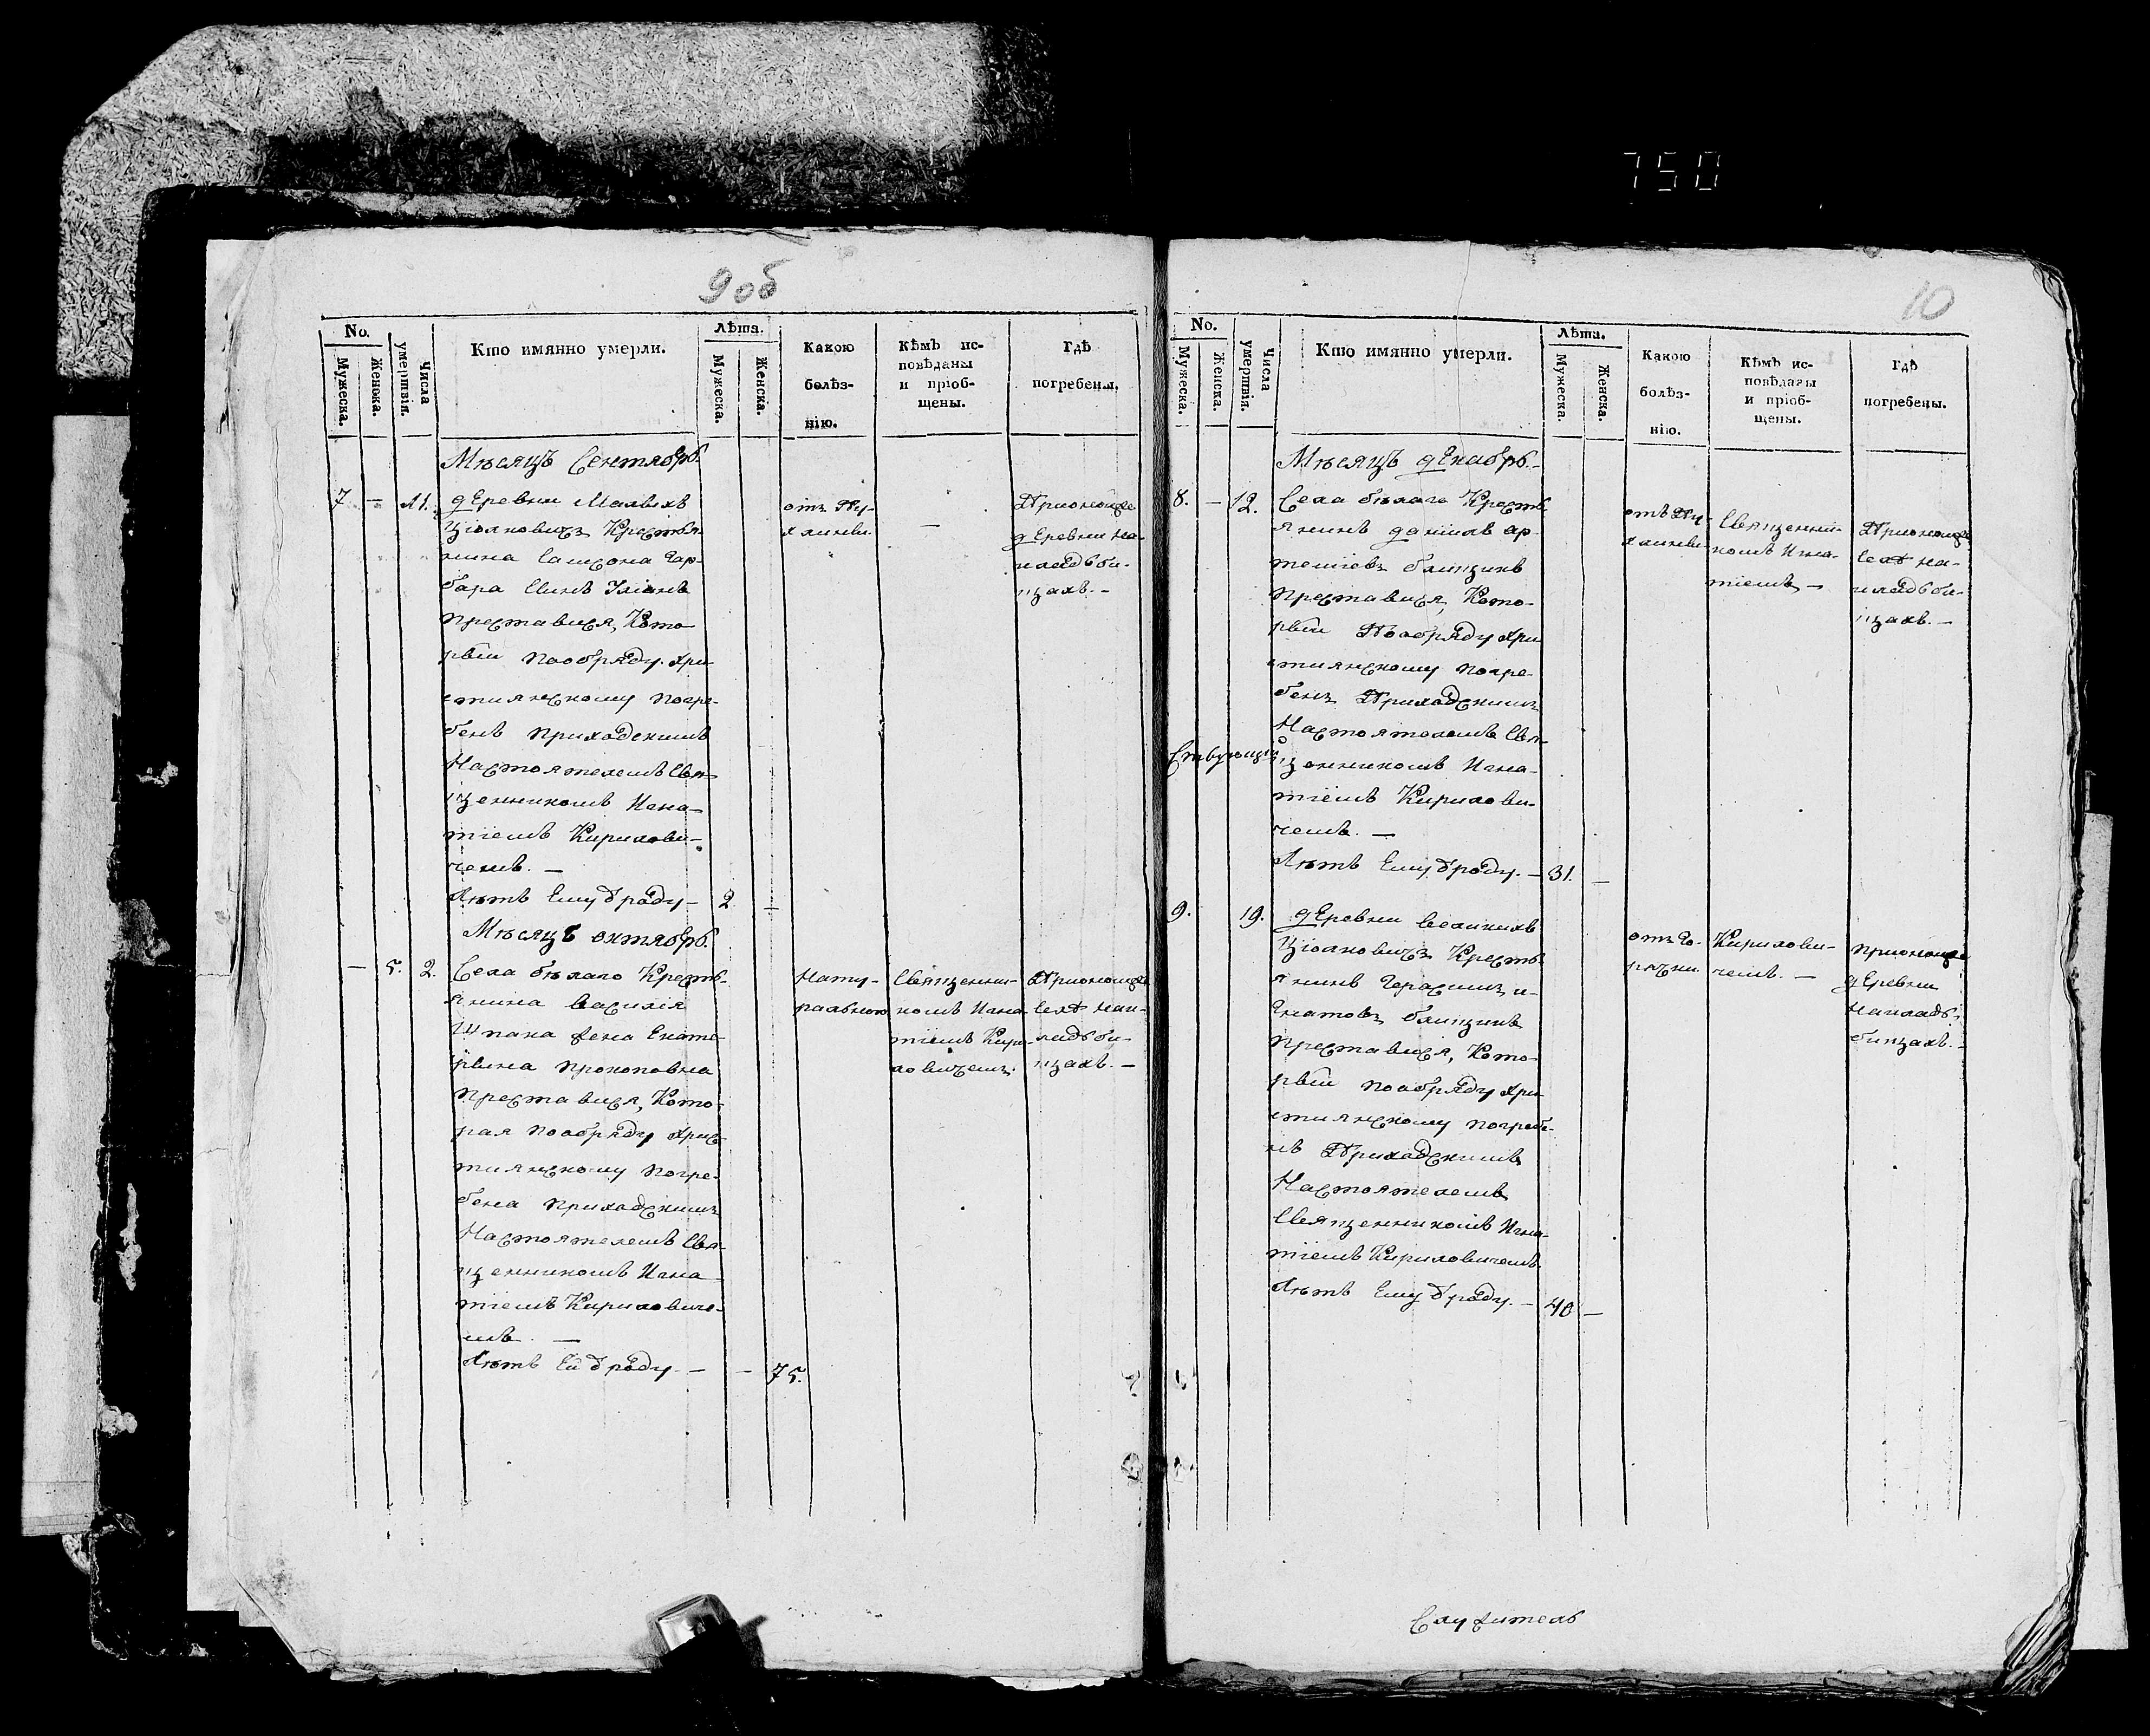 750
9 об
No.
Мужеска.
Женска.
Числа умертвія.
Кто имянно умерли.
Лѣта.
Мужеска.
Женска.
Какою
болѣз-
нію.
Кѣмъ ис-
повѣданы
и пріоб-
щены.
Гдѣ
погребены.
Мѣсяцъ Сентябрь.
7. — 11.
деревни Малыхъ
Ціолковичъ Крестья-
нина Самсона Гар-
бара Синъ Уліанъ
преставися, Кото-
рый пообряду Хри-
стиянскому погре-
бенъ приходскимъ
Настоятелемъ Свя-
щенникомъ Игна-
тіемъ Кирилови-
чемъ. —
Лѣтъ Ему ѿроду — 2 —
отъ Пу-
хлины
—
Прионойже
деревни на
кладьби-
щахъ. —
Мѣсяцъ октябрь.
— 5. 2.
Села бѣлаго Кресть-
янина василія
Шпака жена Екате-
рина прокоповна
преставися, Кото-
рая пообряду Хрис-
тиянскому погре-
бена приходскимъ
Настоятелемъ Свя-
щенникомъ Игна-
тіемъ Кириловиче-
мъ. —
Лѣтъ Ей ѿроду. — — 75.
Нату-
ральною
Священни-
комъ Игна
тіемъ Кири-
ловичемъ.
Приономже
Селѣ нак-
ладьби-
щахъ. —
10
No.
Мужеска.
Женска.
Числа умертвія.
Кто имянно умерли.
Лѣта.
Мужеска.
Женска.
Какою
болѣз-
нію.
Кѣмъ ис-
повѣданы
и пріоб-
щены.
Гдѣ
погребены.
Мѣсяцъ декабрь. —
8. — 12.
Села бѣлаго Кресть-
янинъ даніилъ ар-
теміевъ блищикъ
преставися, Кото-
рый Пообряду Хри
стиянскому погре-
бенъ Приходскимъ
Настоятелемъ Свя-
щенникомъ Игна-
тіемъ Кирилови-
чемъ. —
Лѣтъ Ему ѿроду. — 31. —
отъ Пу-
хлины
Священни-
комъ Игна-
тіемъ —
Приономже
Селѣ на-
кладьби-
щахъ. —
9. 19.
деревни великихъ
Ціолковичъ Кресть-
янинъ Герасимъ и-
гнатовъ блищикъ
преставися, Кото-
рый пообряду Хри
стиянскому погребе-
нъ Приходскимъ
Настоятелемъ
Священникомъ Игна-
тіемъ Кириловичемъ.
Лѣтъ Ему ѿроду. — 40 —
отъ Го-
рячки
Кирилови-
чемъ. —
прионойже
деревни
Накладь-
бищахъ. —